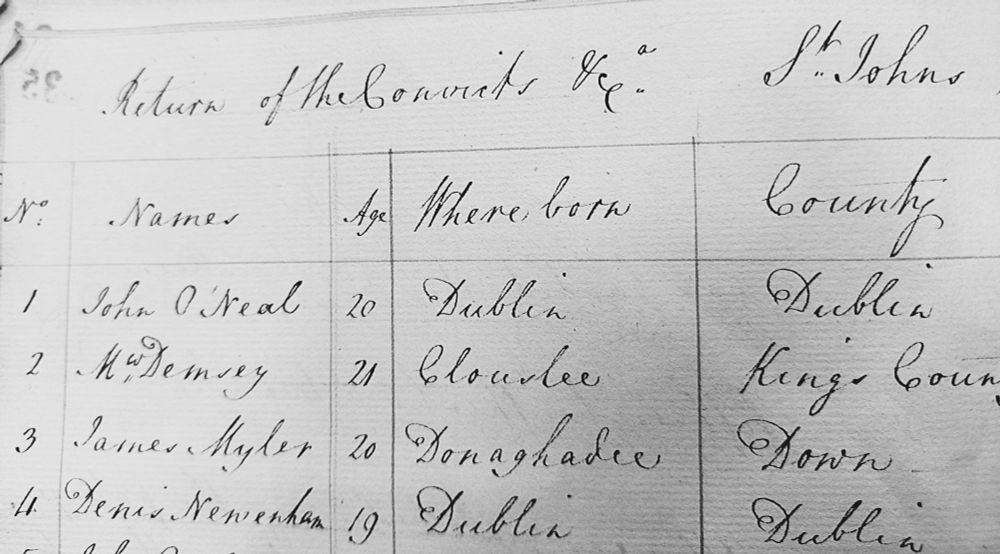 Return of the Convicts &cᵃ St Johns
Nº Names Age Where born County
1 John O'Neal 20 Dublin Dublin
2 Mw Demsey 21 Clouslee Kings Coun
3 James Myler 20 Donaghadee Down
4 Denis Newenham 19 Dublin Dublin